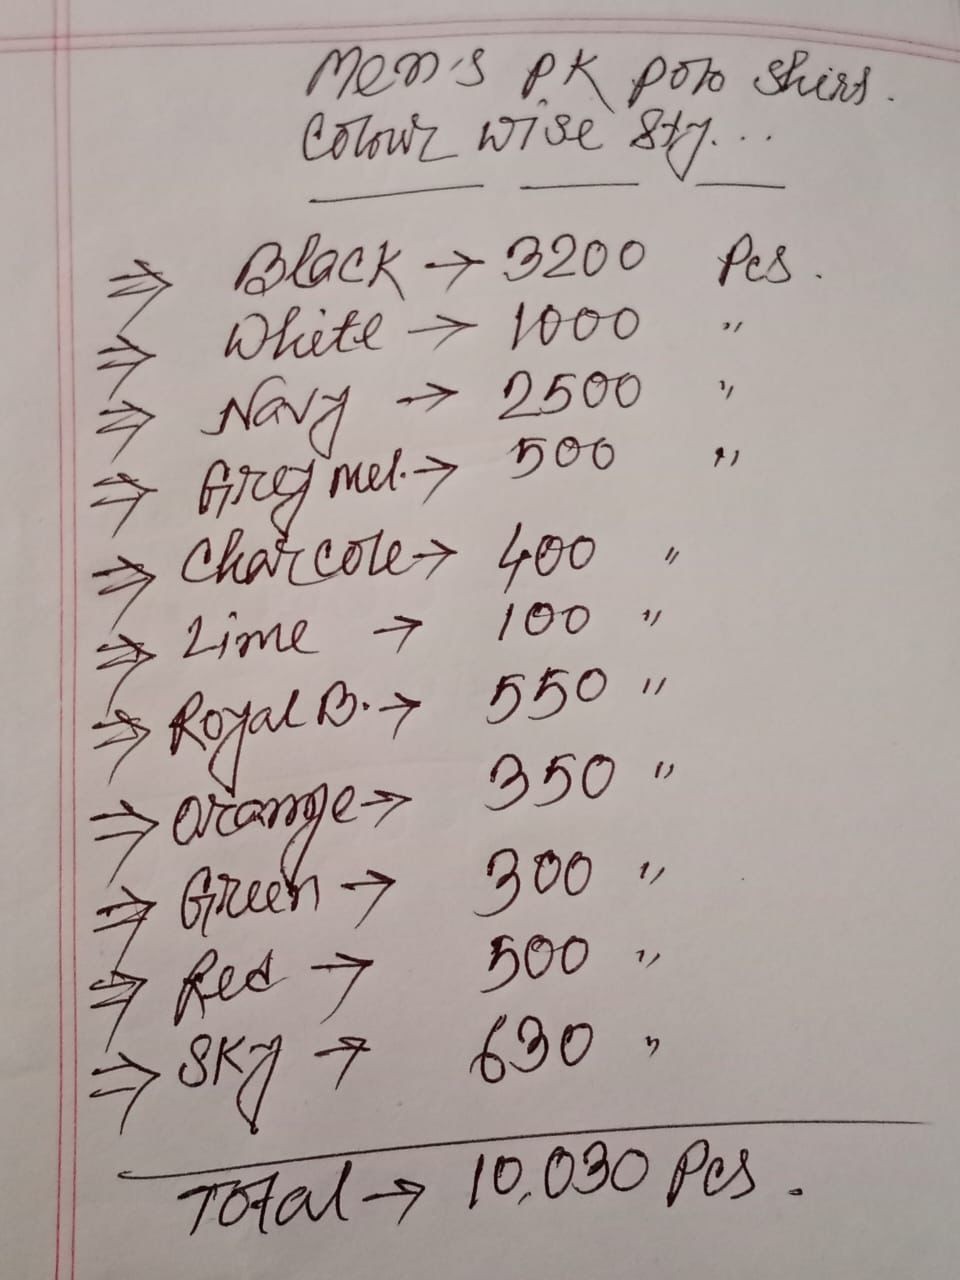 Men's PK polo Shirt.
Colour wise Qty...
⇒ Black → 3200 Pcs.
⇒ White → 1000 "
⇒ Navy → 2500 "
⇒ Grey mel. → 500 "
⇒ Charcole → 400 "
⇒ Lime → 100 "
⇒ Royal B. → 550 "
⇒ Orange → 350 "
⇒ Green → 300 "
⇒ Red → 500 "
⇒ Sky → 630 "
Total → 10,030 Pcs.